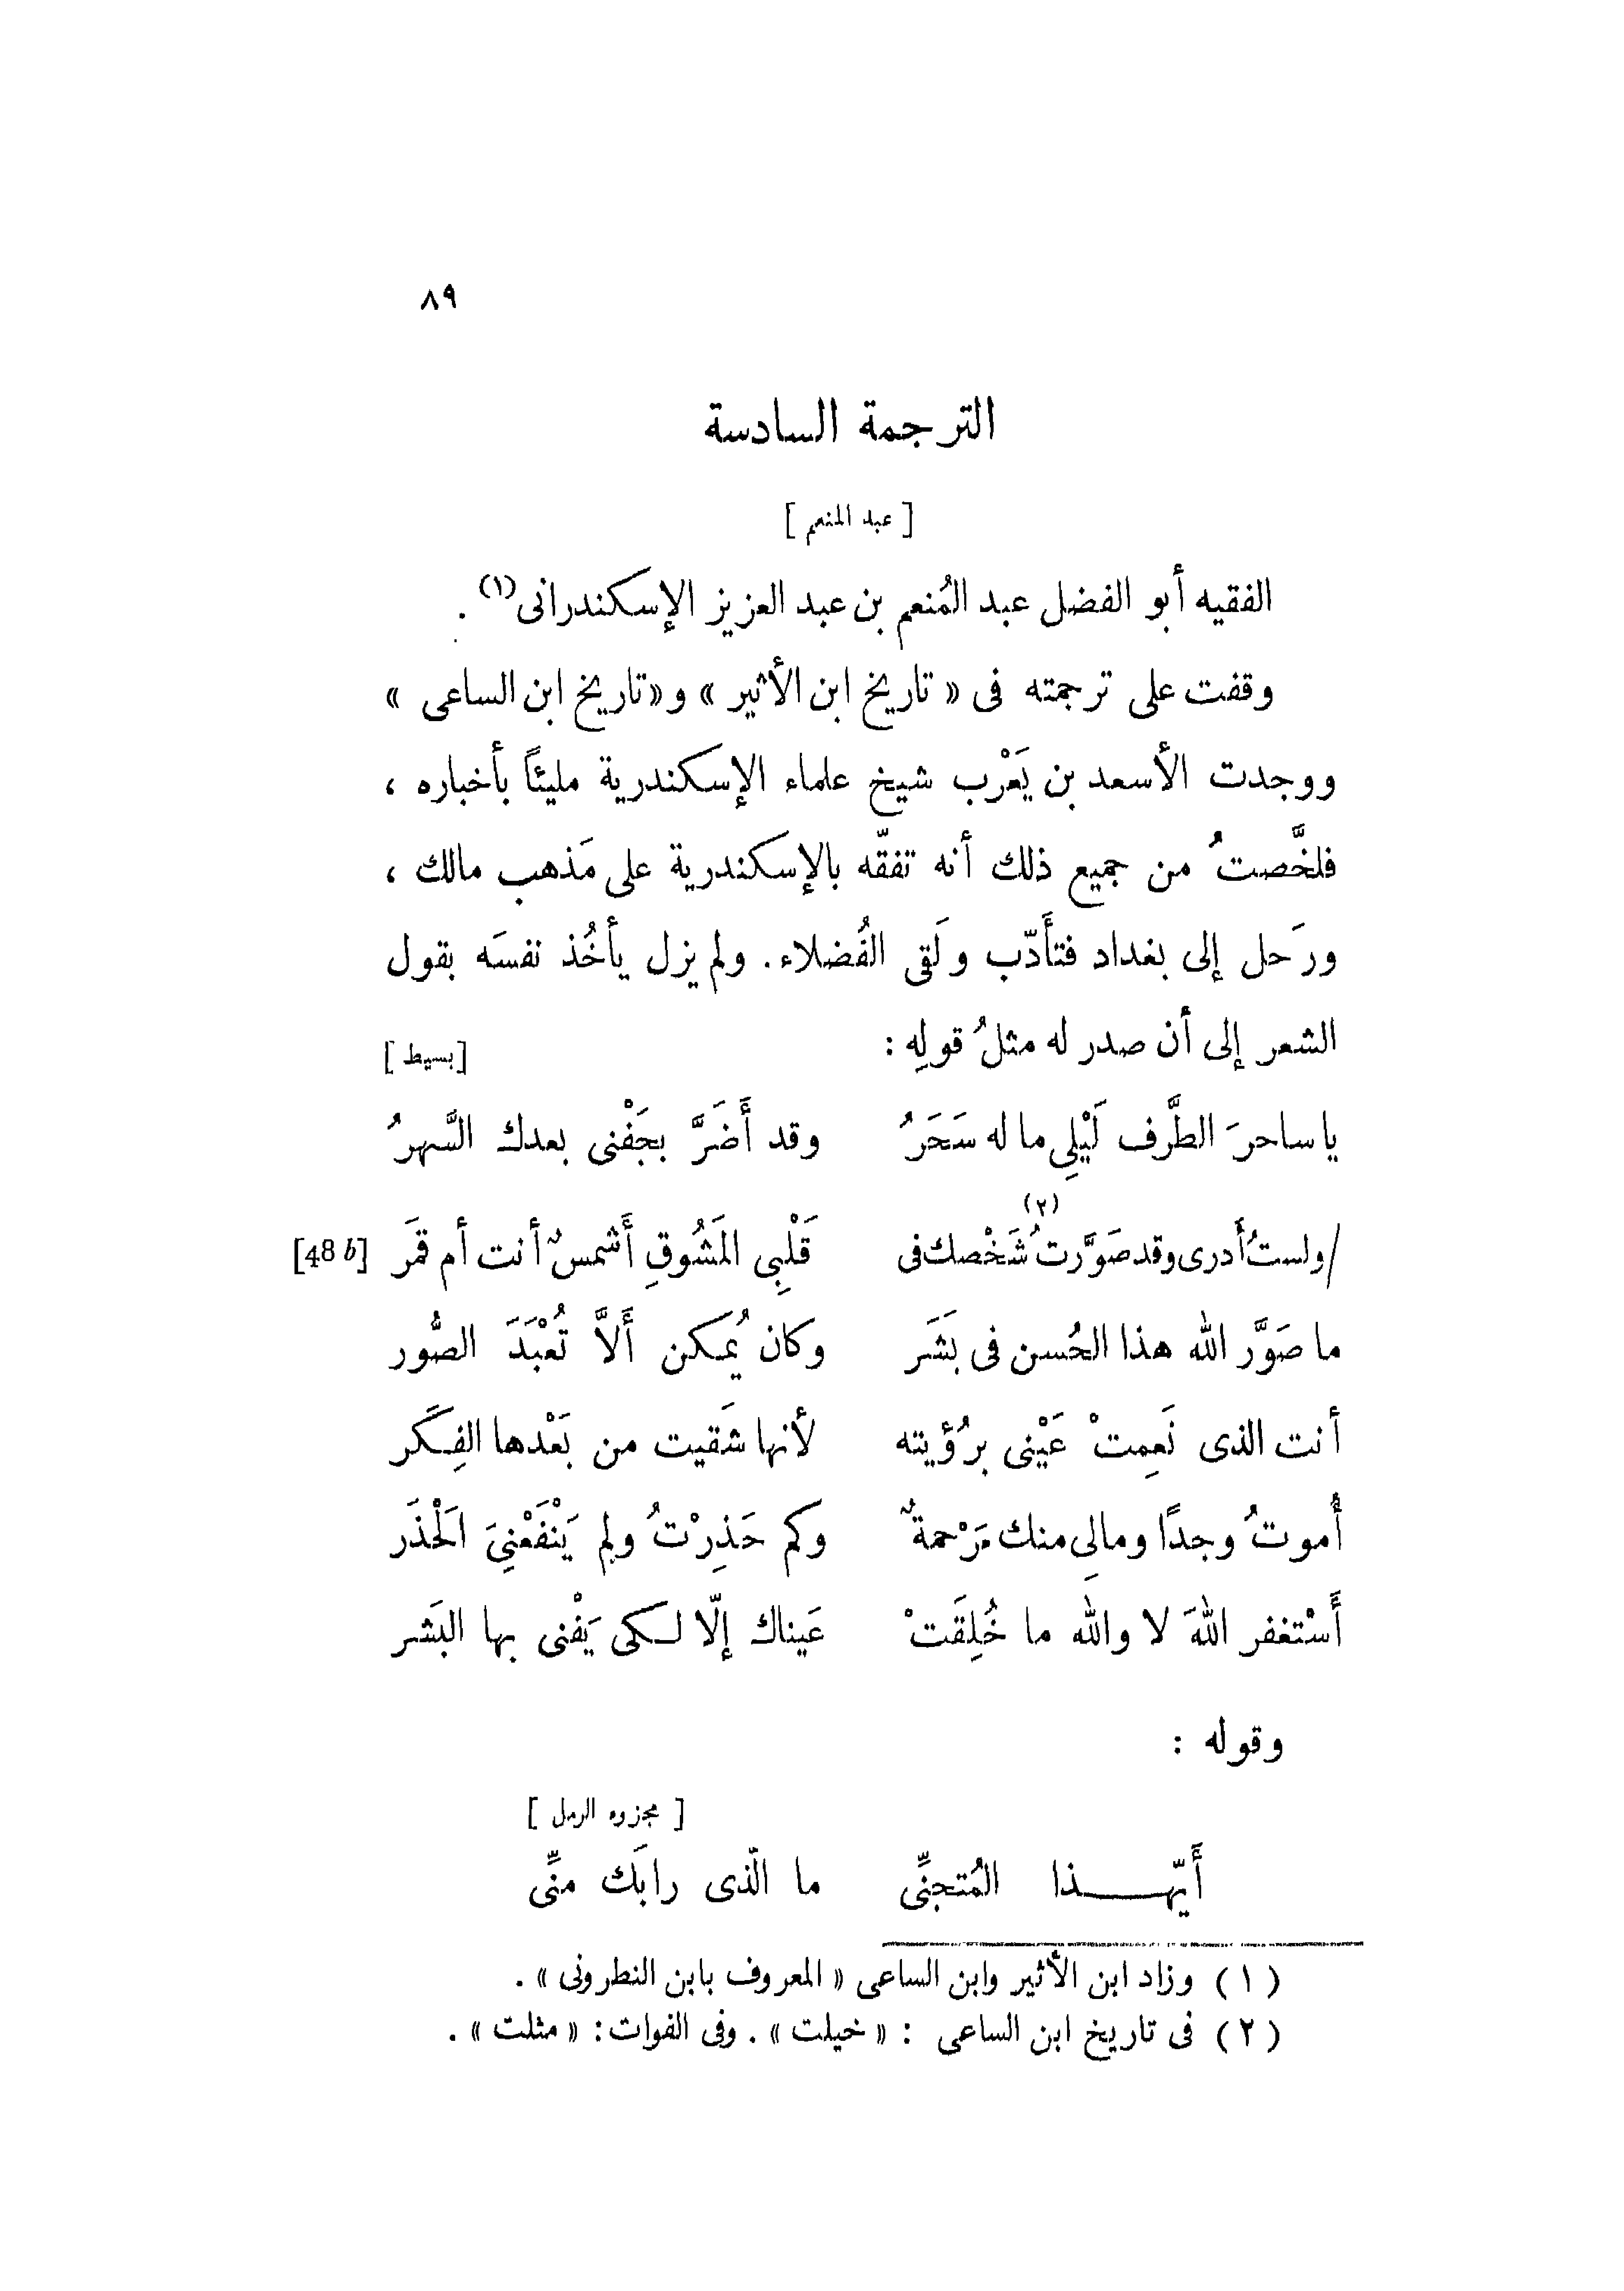 ٨٩
الترجمة السادسة
[ عبد المنعم ]
الفقيه أبو الفضل عبد المُنعم بن عبد العزيز الإسكندرانى(١) .
وقفت على ترجمته فى « تاريخ ابن الأثير » و « تاريخ ابن الساعى »
ووجدت الأسعد بن يَعْرب شيخ علماء الإسكندرية مليئاً بأخباره ،
فلخَّصتُ من جميع ذلك أنه تفقّه بالإسكندرية على مَذهب مالك ،
ورَحل إلى بغداد فتأَدّب ولَقى الفُضلاء. ولم يزل يأخُذ نفسَه بقول
الشعر إلى أن صدر له مثلُ قولِه : [بسيط]
يا ساحرَ الطَّرف لَيْلِى ما له سَحَرُ وقد أَضَرَّ بجَفْنى بعدك السَّهرُ
/ولستُ أَدرى وقد صَوَّرتُ(٢) شَخْصك فى قَلْبِى المَشُوقِ أَشمسٌ أنت أم قمَر [48 b]
ما صَوَّر الله هذا الحُسن فى بَشَر وكان يُمكن أَلاَّ تُعْبَدَ الصُّور
أنت الذى نَعِمتْ عَيْنى برُؤيته لأنها شَقيت من بَعْدها الفِكَر
أَموتُ وجدًا ومالِى منك مَرْحمةٌ وكم حَذِرْتُ ولم يَنْفَعْنِىَ الَحْذَر
أَسْتغفر اللهَ لا والله ما خُلِقَتْ عَيناك إلّا لكى يَفْنى بها البَشر
وقوله :
[ مجزوء الرمل ]
أَيّهذا المُتجنِّى ما الّذى رابَك منِّى
( ١ ) وزاد ابن الأثير وابن الساعى « المعروف بابن النطرونى » .
( ٢ ) فى تاريخ ابن الساعى : « خيلت » . وفى الفوات : « مثلت » .